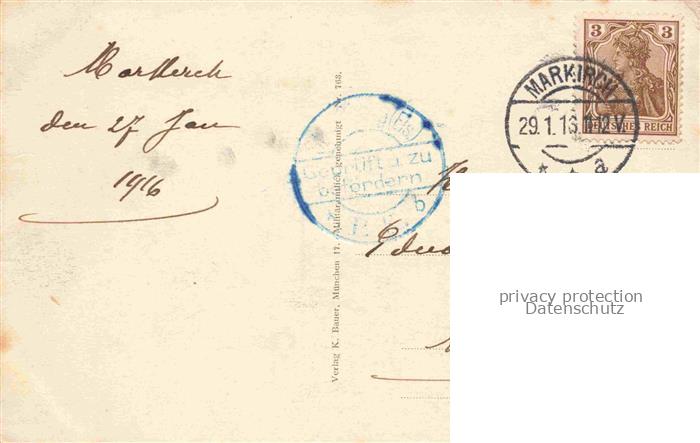 Markirch
den 27 Jan
1916
Verlag K. Bauer, München 17. Militäramtlich genehmigt Nr. 763.
(Els)
Geprüft u. zu
befördern
b
3 3
DEUTSCHES REICH
MARKIRCH
29.1.16.11-12V.
* * a
privacy protection
Datenschutz